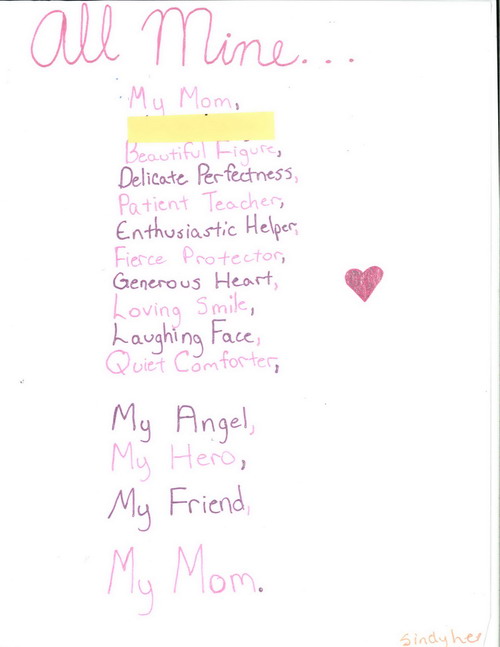 All Mine...
My Mom,
Beautiful Figure,
Delicate Perfectness,
Patient Teacher,
Enthusiastic Helper,
Fierce Protector,
Generous Heart,
Loving Smile,
Laughing Face,
Quiet Comforter,
My Angel,
My Hero,
My Friend,
My Mom.